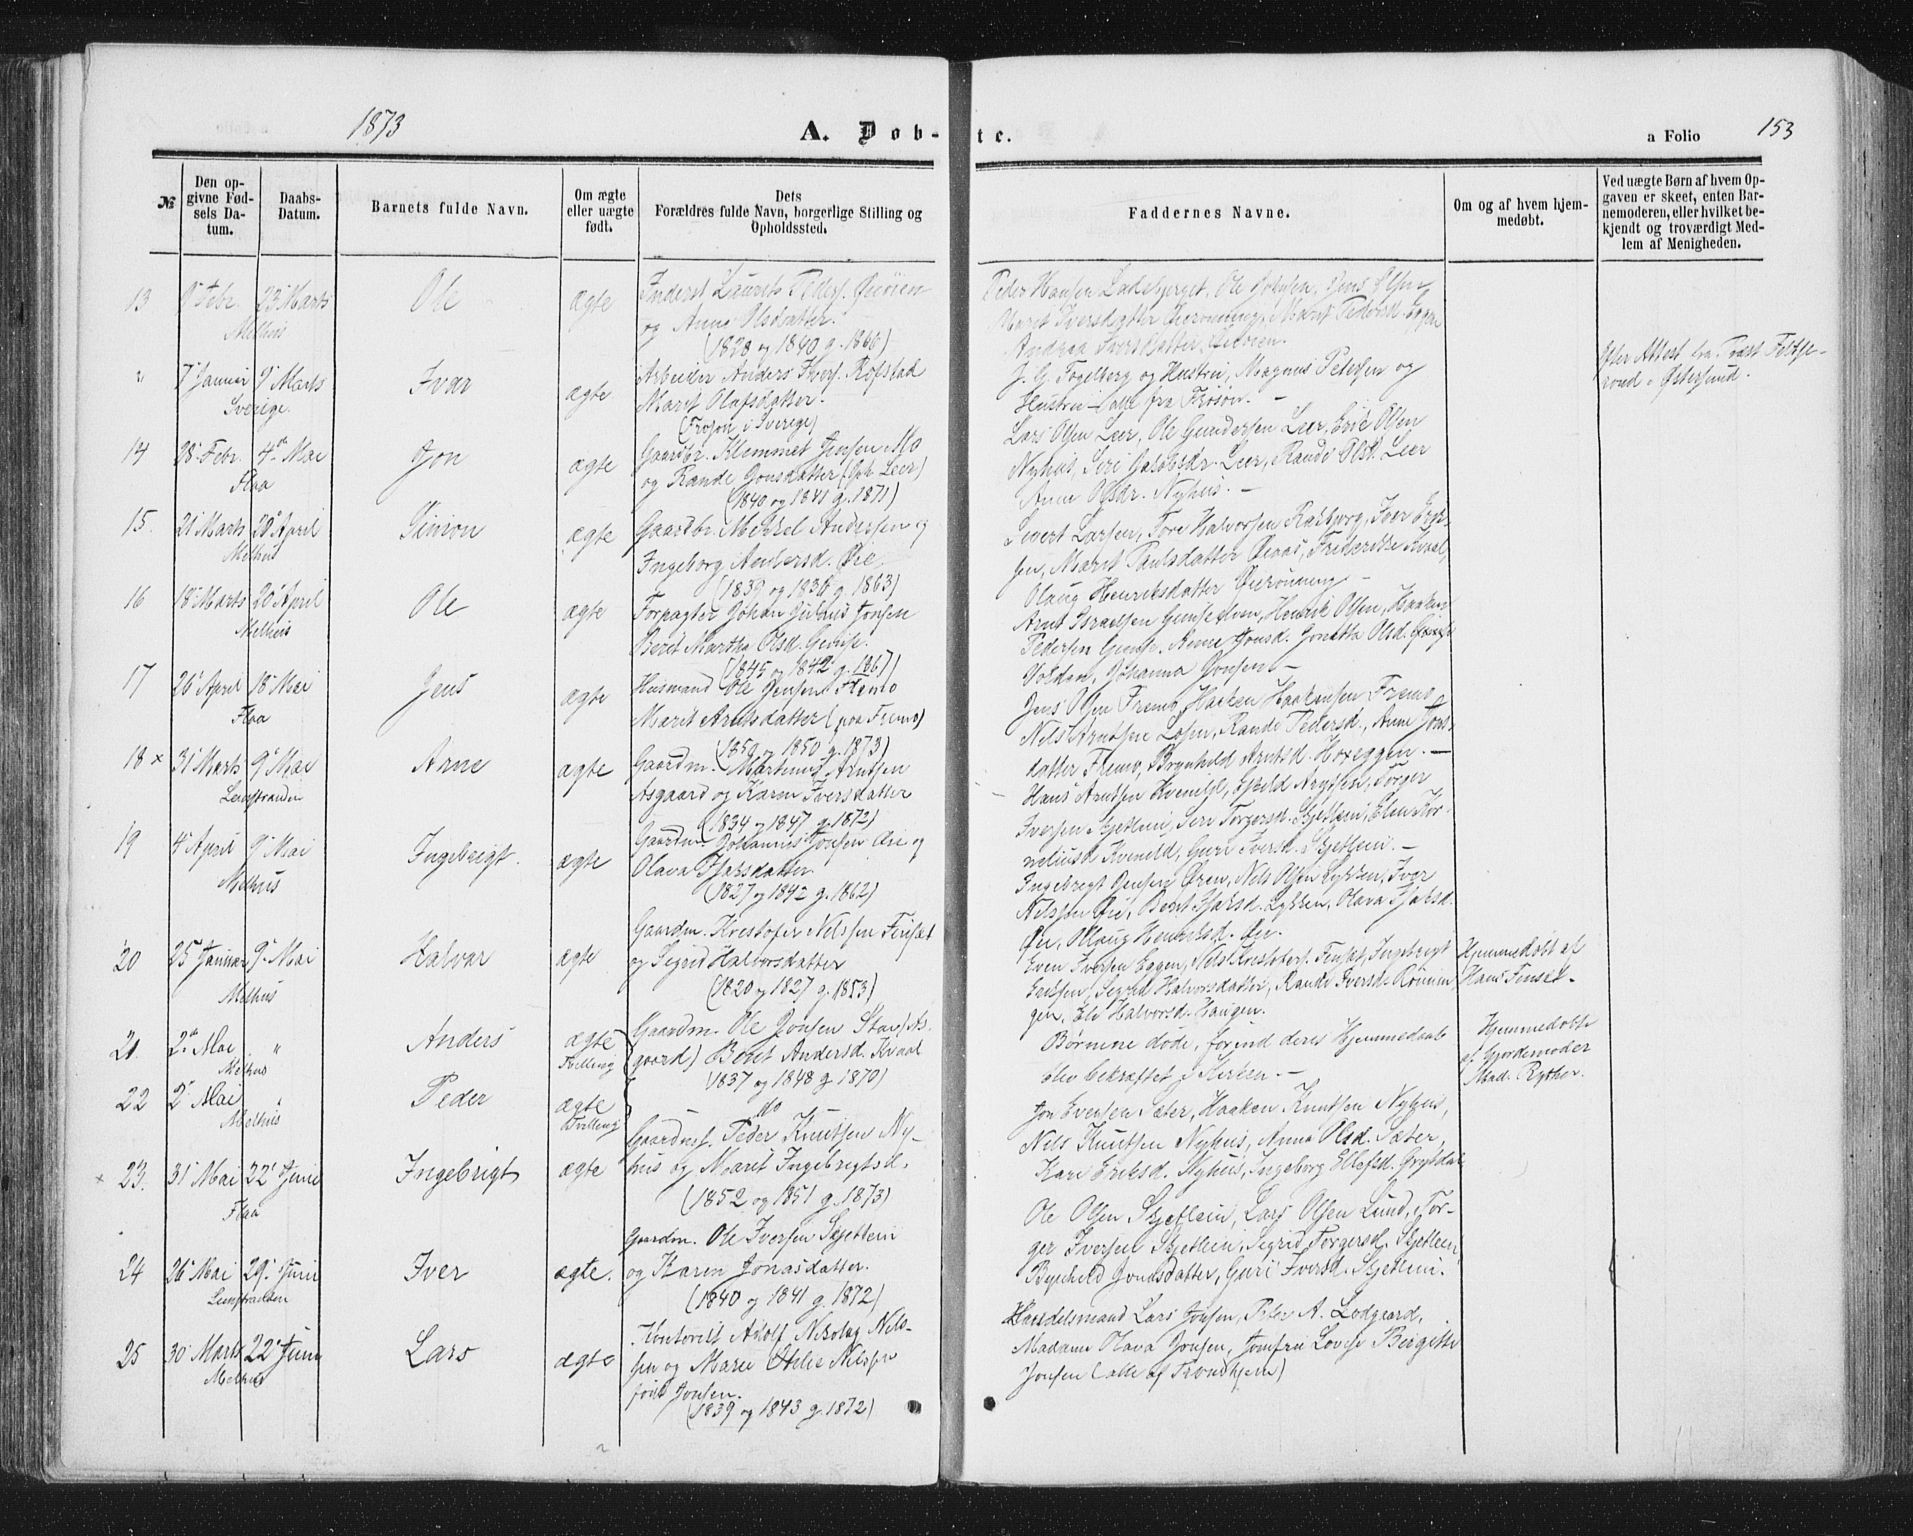 1873
A. Døb-
te.
a Folio
153
№
Den op-
givne Fød-
sels Da-
tum.
Daabs-
Datum.
Barnets fulde Navn.
Om ægte
eller uægte
født.
Dets
Forældres fulde Navn, borgerlige Stilling og
Opholdssted.
Faddernes Navne.
Om og af hvem hjem-
medøbt.
Ved uægte Børn af hvem Op-
gaven er skeet, enten Bar-
nemoderen, eller hvilket be-
kjendt og troværdigt Med-
lem af Menigheden.
13
Febr. 23 Marts
Melhus
Ole
ægte
Inderst Laurits Peders.
og Anne Olsdatter.
(1828 og 1840 g. 1866)
Peder Hansen Ladebjerget, Ole Jensen, Jens Olsen
Maret Iversdatter
Andrea Iversdatter
"
7 Januar 9 Marts
Sverige.
Ivar
ægte
Arbeider Anders Ivers. Rofstad
Maret Olafsdatter.
(Frøsøn i Sverige)
J. G. Fogelberg og Hustru, Magnus Petersen og
Hustru - alle fra Frøsøn. -
Efter Attest fra Præst
i Østersund.
14
28 Febr. 4 Mai
Flaa
Jon
ægte
Gaardbr. Klemmet Jensen Mo
og Rande Jonsdatter (Oph. Leer)
(1840 og 1841 g. 1871)
Lars Olsen Leer, Ole Gundersen Leer, Eric Olsen
Nyhus, Siri Jakobsdr. Leer, Randi Olsd. Leer
Anne Olsdr. Nyhus. -
15.
21 Marts 20 April
Melhus
Simon
ægte
Gaardbr. Mikkel Andersen og
Ingeborg Andersd. Øie
(1839 og 1836 g. 1863)
Sivert Larsen, Tore Halvorsen
Marit Paulsdatter
Olaug Henriksdatter
16
18 Marts 20 April
Melhus
Ole
ægte
Forpagter Johan Julius Jonsen
Berit Martha Olsd. Gimse.
(1845 og 1842 g. 1867)
Arnt Israelsen Gimse, Henrik Olsen, Haaken
Pedersen Gimse, Anne Jonsd.
Voldan, Johanna Jonsen -
17
26 April 18 Mai
Flaa
Jens
ægte
Husmand Ole Jensen Fremo
Marit Arntsdatter (paa Fremo)
(1850 og 1850 g. 1873)
Jens Olsen Fremo, Haaken Haakensen Fremo
Nils Arntsen Losen, Rande Pedersd., Anne Jons-
datter Fremo, Brynhild Arntsd. Hoxeggen. -
18 x
31 Marts 9 Mai
Leinstranden
Arne
ægte
Gaardm. Martinus Arntsen
Asgaard og Karen Iversdatter
(1834 og 1847 g. 1872)
Hans Arntsen Kvenild, Arntsen, Torger
Iversen Skjetlein, Siri Torgersd. Skjetlein, Elen Kor-
neliusd Kvenild, Guri Iversd. Skjetlein. -
19
4 April 9 Mai
Melhus
Ingebrigt.
ægte
Gaardm. Johannes Jonsen Øie og
Olava Isaksdatter
(1827 og 1842 g. 1862)
Ingebrigt Jensen Øien, Nils Olsen Lykken, Iver
Nilssen Øie, Berit Isaksd. Lykken, Olava Isaksd.
Øie, Olaug Henriksd. Øie.
20
25 Januar 9 Mai
Melhus
Halvar
ægte
Gaardm. Kristofer Nilssen Finset
og Sigrid Halvorsdatter
(1820 og 1827 g. 1853)
Even Iversen Eggen, Nils Kristofers. Finset, Ingebrigt
Eriksen, Sigrid Halvorsdatter, Rande Iversd. Rønnin-
gen, Eli Halvorsd. Haugen.
Hjemmedøbt af
Hans Finset -
21
2 Mai "
Melhus
Anders
ægte
Tvilling
Gaardm. Ole Jonsen Stav (As-
gaard) Berit Andersd. Kvaal
(1837 og 1848 g. 1870)
Børnene døde, førend deres Hjemmedaab
blev bekræftet i Kirken. -
Hjemmedøbte
af Jordemoder
Mad. Rytter.
22
2 Mai "
Melhus
Peder
ægte
Tvilling
do
x 23.
31 Mai 22 Juni
Flaa
Ingebrigt
ægte
Gaardmf. Peder Knutsen Ny-
hus og Marit Ingebrigtsd.
(1852 og 1851 g. 1873)
Jon Eversen Sæter, Haaken Knutsen Nyhus,
Nils Knutsen Nyhus, Anna Olsd. Sæter,
Kari Eriksd. Nyhus, Ingeborg Ellefsd. Grytdal
24
26 Mai 29 Juni
Leinstranden
Iver
ægte.
Gaardm. Ole Iversen Skjetlein
og Karen Jonasdatter.
(1840 og 1841 g. 1872)
Ole Olsen Skjetlein, Lars Olsen Lund, Tor-
ger Iversen Skjetlein, Sigrid Torgersd. Skjetlein
Brynhild Jonasdatter, Guri Iversd. Skjetlein.
25
30 Marts 22 Juni
Melhus
Lars
ægte
Kontorist Adolf Nikolay Nils-
sen og Marie Otelie Nilssen
født Jonsen.
(1839 og 1843 g. 1872)
Handelsmand Lars Jonsen, Peter A. Lodgaard,
Madame Olava Jonsen, Jomfru Lovise Bergitte
Jonsen (alle af Trondhjem)